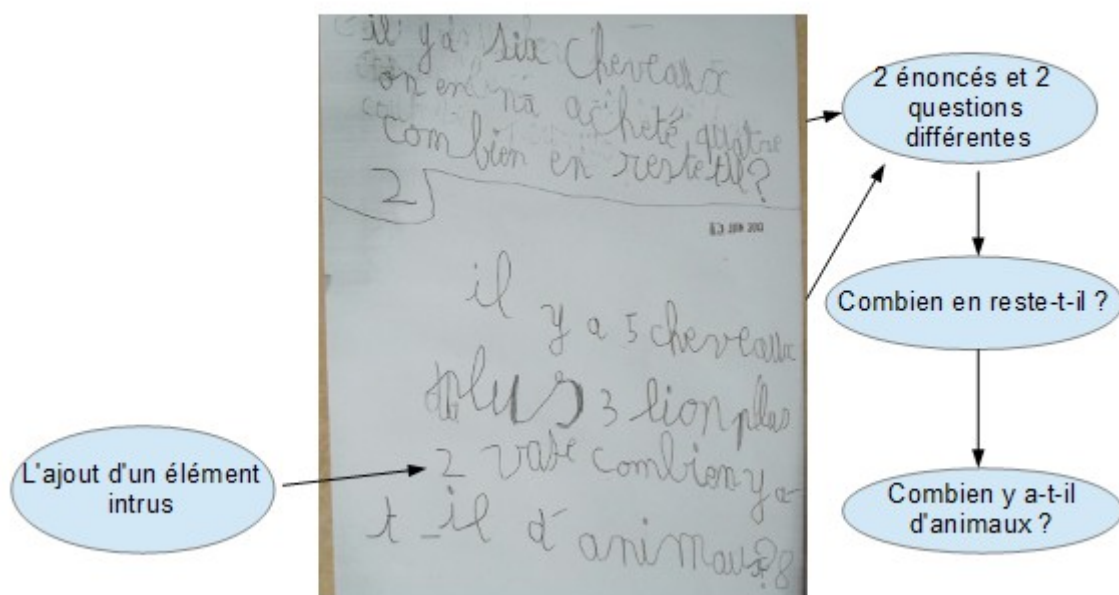 il y a six cheveaux
on en na acheté quatre
combien en reste til?
2
il
y a 5 cheveaux
plus 3 lion plus
2 vase combien y a-
t-il d'animaux? 8
2 énoncés et 2
questions
différentes
Combien en reste-t-il ?
Combien y a-t-il
d'animaux ?
L'ajout d'un élément
intrus